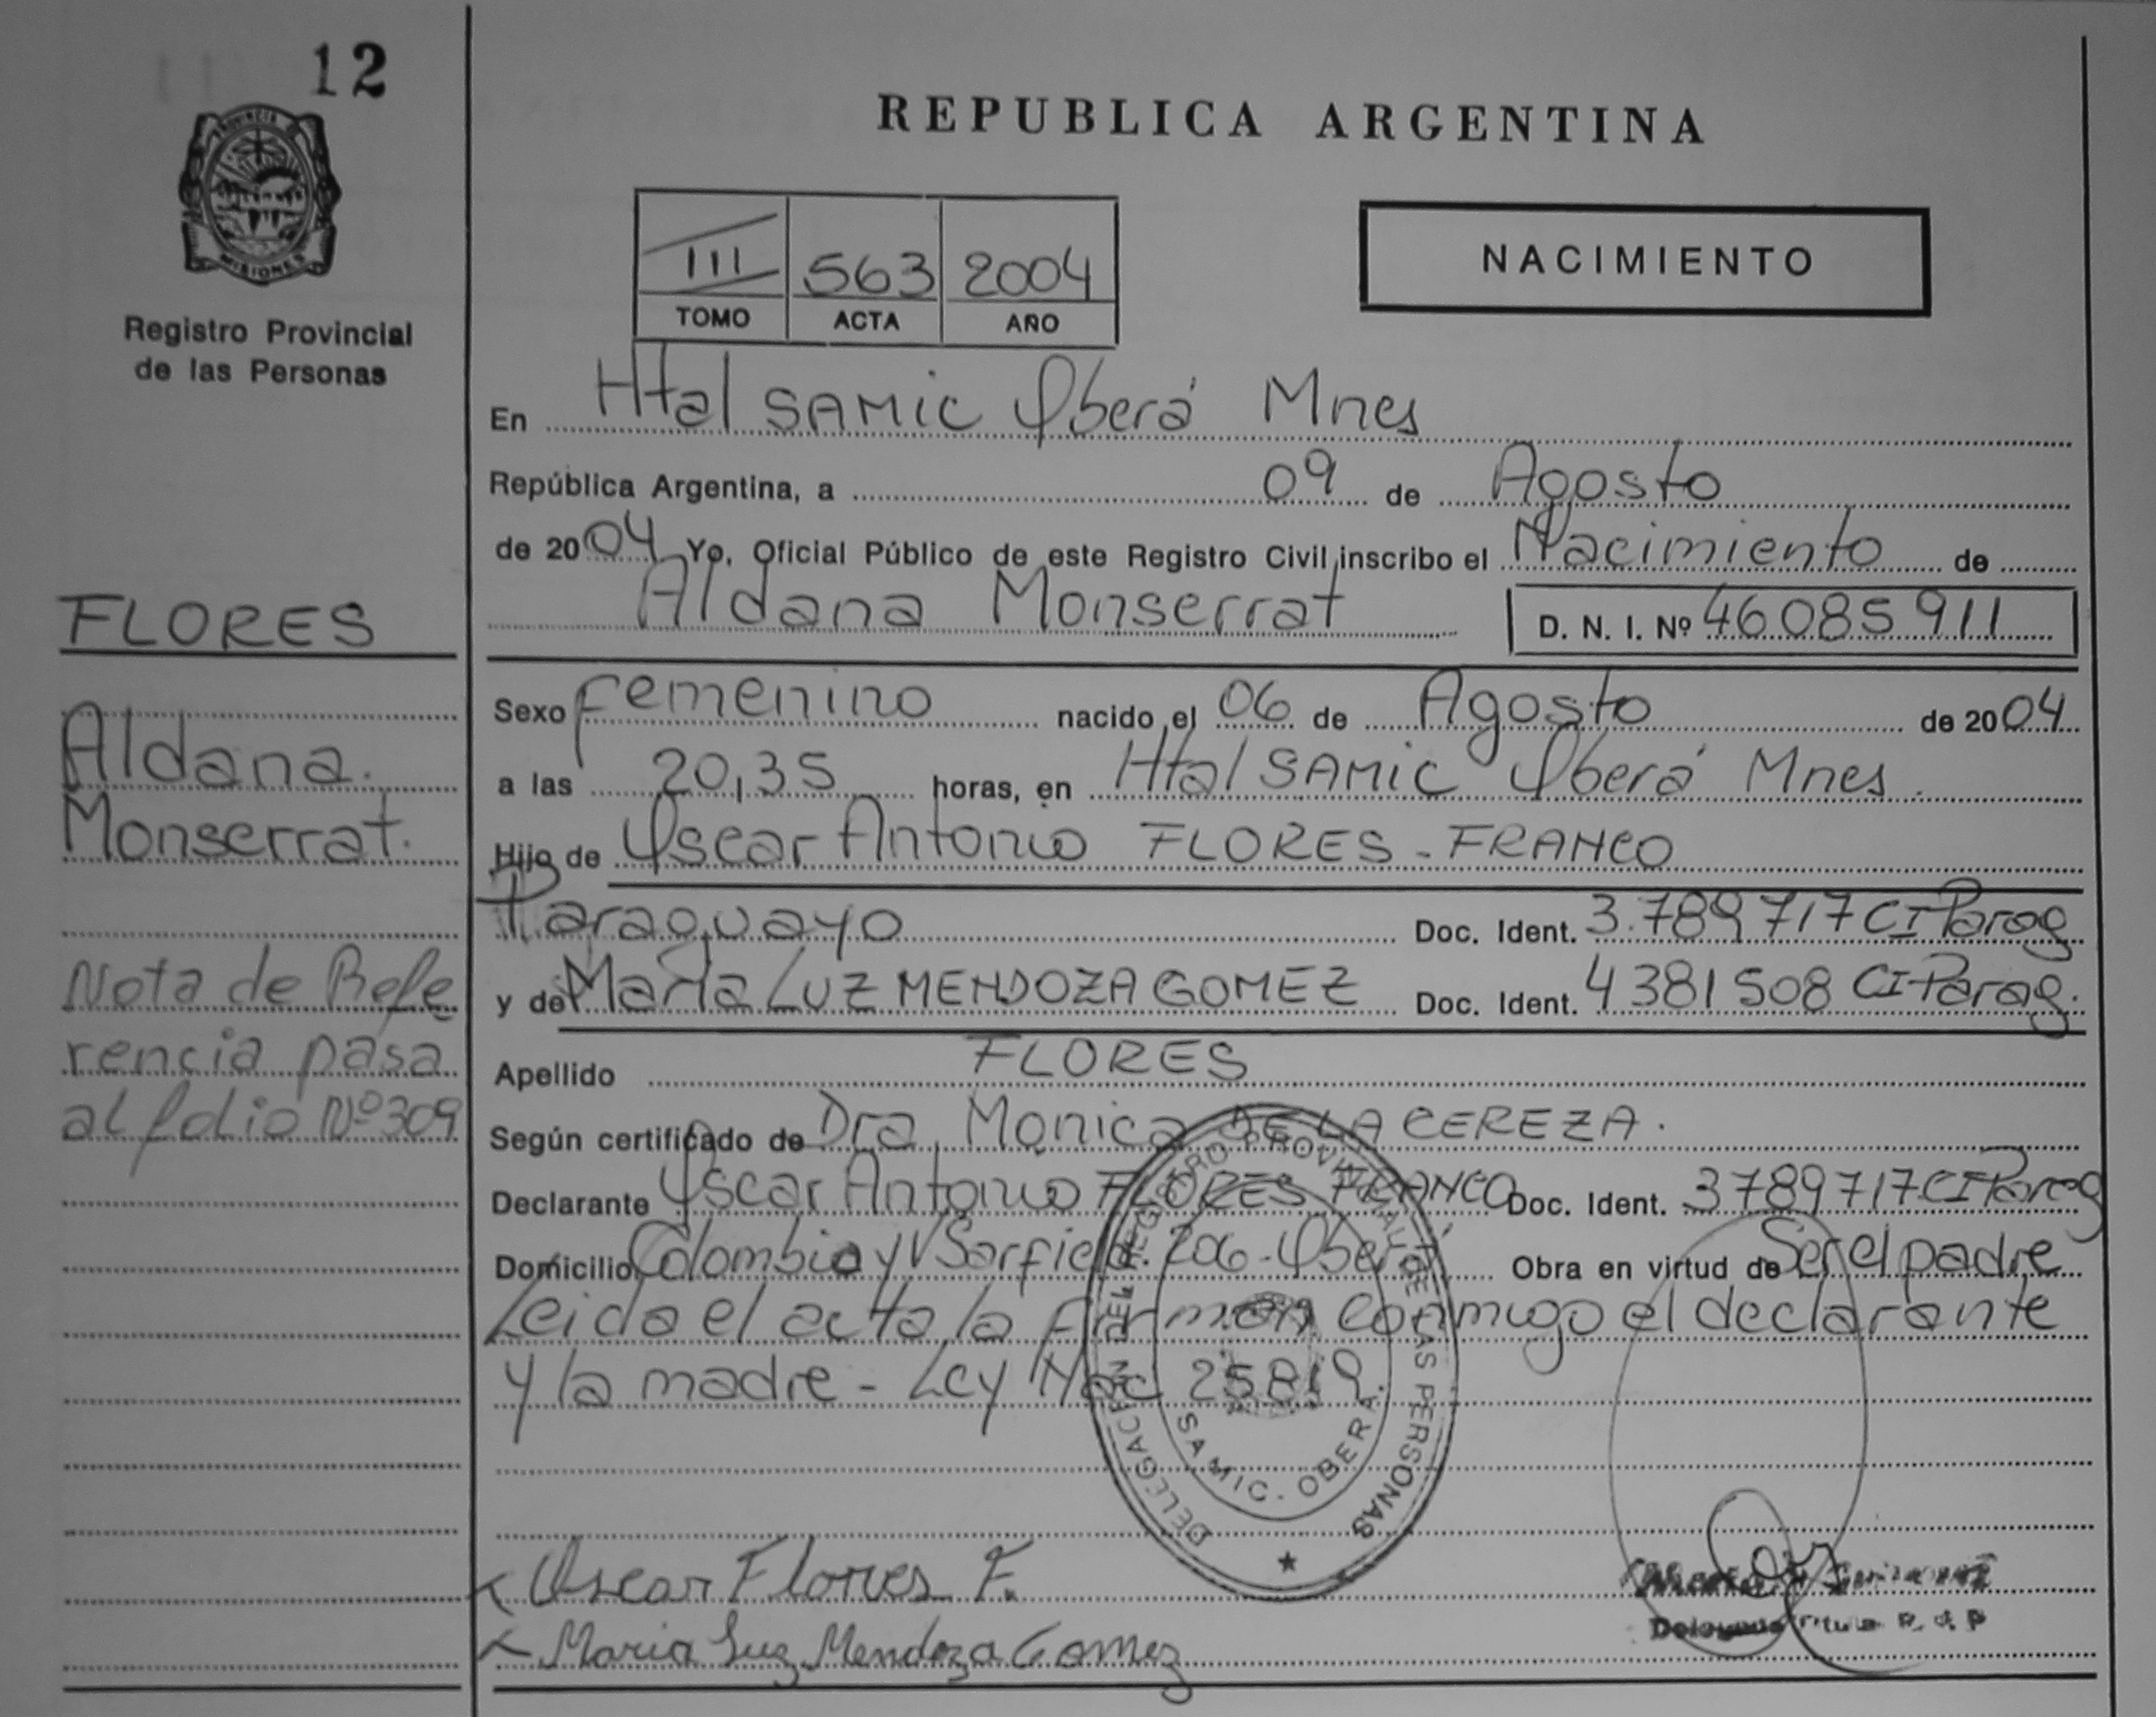 12
PROVINCIA DE
MISIONES
Registro Provincial
de las Personas
REPUBLICA ARGENTINA
III 563 2004
TOMO ACTA AÑO
NACIMIENTO
En Htal SAMIC Oberá Mnes
República Argentina, a 09 de Agosto
de 2004 Yo, Oficial Público de este Registro Civil inscribo el Nacimiento de
Aldana Monserrat D. N. I. Nº 46085911
Sexo Femenino nacido el 06 de Agosto de 2004
a las 20,35 horas, en Htal SAMIC Oberá Mnes.
Hijo de Oscar Antonio FLORES - FRANCO
Paraguayo Doc. Ident. 3.789717 CI Parag
y de Maria Luz MENDOZA GOMEZ Doc. Ident. 4381508 CI Parag.
Apellido FLORES
Según certificado de Dra. Monica DE LA CEREZA.
Declarante Oscar Antonio FLORES FRANCO Doc. Ident. 3789717 CI Parag
Domicilio Colombia y VSarfield. 206 - Oberá Obra en virtud de Ser el padre
Leida el acta la firman conmigo el declarante
y la madre - Ley Nac 25819.
FLORES
Aldana.
Monserrat.
Nota de Refe
rencia pasa
al folio Nº 309
DELEGACION DEL REGISTRO PROVINCIAL DE LAS PERSONAS
SAMIC. OBERA.
Oscar Flores F.
Maria Luz Mendoza Gomez
R. d. P